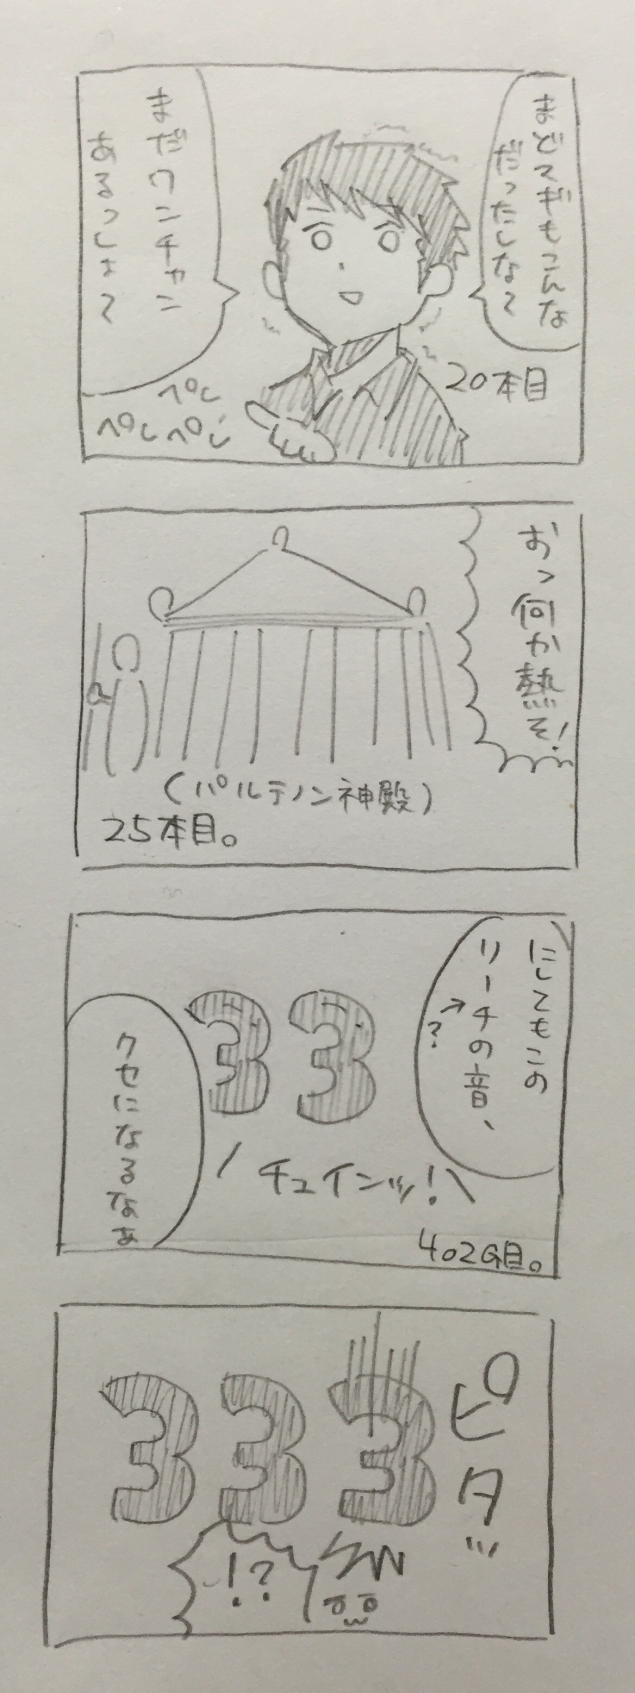 まどマギもこんな
だったしな〜
まだワンチャン
あるっしょ〜
20本目
ペし
ペしペし
おっ何か熱そ!
(パルテノン神殿)
25本目。
にしてもこの
リーチの音、
→?
クセになるなぁ
33
チュインッ!
402G目。
333
ピタッ
!?